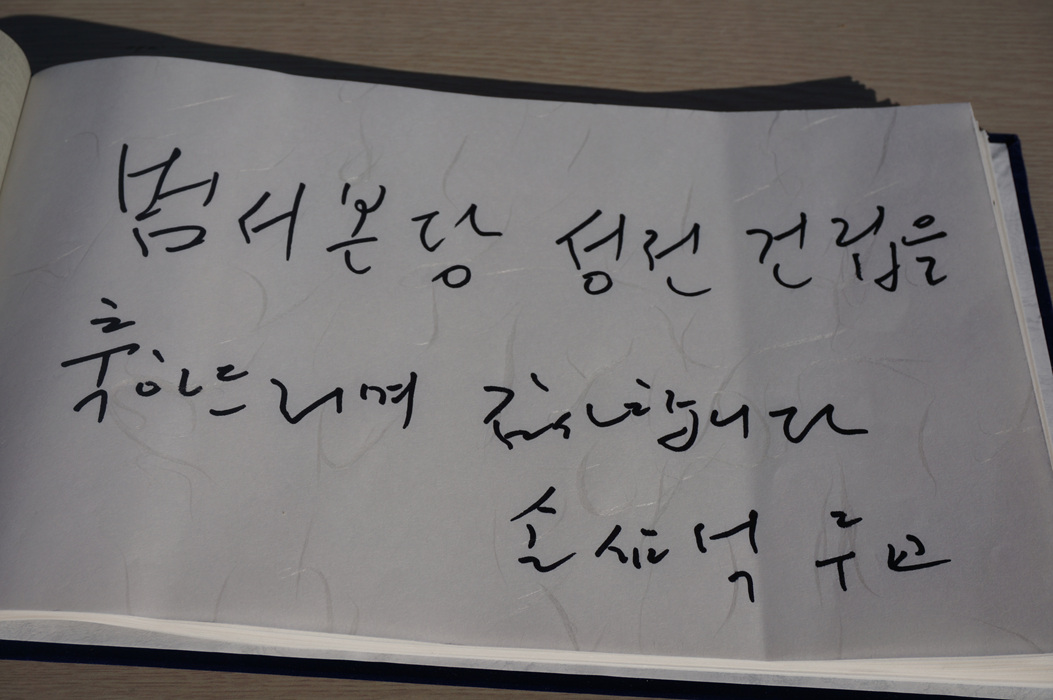 범서본당 성전 건립을
축하드리며 감사합니다
손삼석 주교